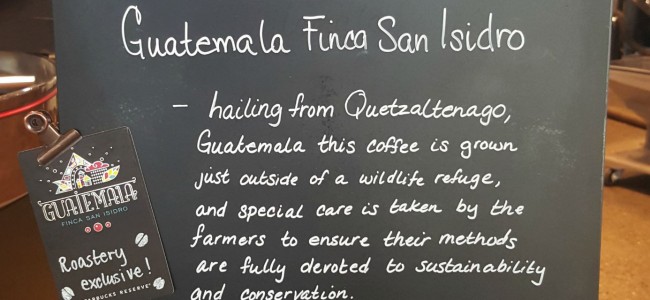 Guatemala Finca San Isidro
- hailing from Quetzaltenago,
Guatemala this coffee is grown
just outside of a wildlife refuge,
and special care is taken by the
farmers to ensure their methods
are fully devoted to sustainability
and conservation.
GUATEMALA
FINCA SAN ISIDRO
Roastery
exclusive!
STARBUCKS RESERVE